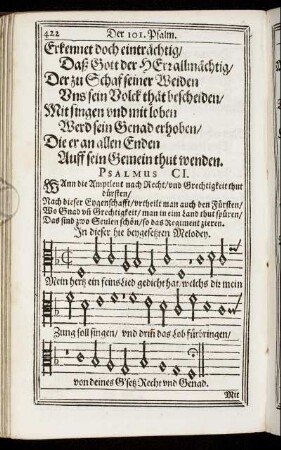 422 Der 101. Psalm.
Erkennet doch einträchtig/
Daß Gott der HErr allmächtig/
Der zu Schaf seiner Weiden
Vns sein Volck thät bescheiden/
Mit singen vnd mit loben
Werd sein Genad erhoben/
Die er an allen Enden
Auff sein Gemein thut wenden.
PSALMUS CI.
WAnn die Amptleut nach Recht/vnd Grechtigkeit thut
dürsten/
Nach dieser Eygenschafft/vrtheilt man auch den Fürsten/
Wo Gnad vñ Grechtigkeit/ man in eim Land thut spüren/
Das sind zwo Seulen schön/so das Regiment zieren.
In dieser hie beygesetzten Melodey.
Mein hertz ein feins Lied gedicht hat/welchs dir mein
Zung soll singen/ vnd drin̄ das Lob fürbringen/
von deines G'setz Recht vnd Genad.
Mit